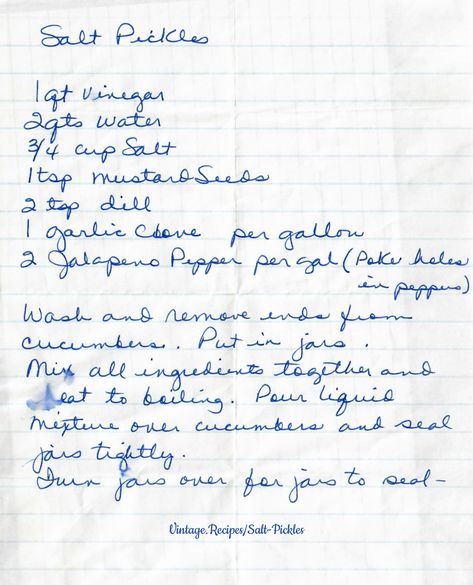 Salt Pickles
1 qt Vinegar
2 qts Water
3/4 cup Salt
1 tsp Mustard Seeds
2 tsp dill
1 garlic Clove per gallon
2 Jalapeno Pepper per gal (Poke holes
in peppers)
Wash and remove ends from
cucumbers. Put in jars.
Mix all ingredients together and
eat to boiling. Pour liquid
mixture over cucumbers and seal
jars tightly.
Turn jars over for jars to seal-
Vintage.Recipes/Salt-Pickles